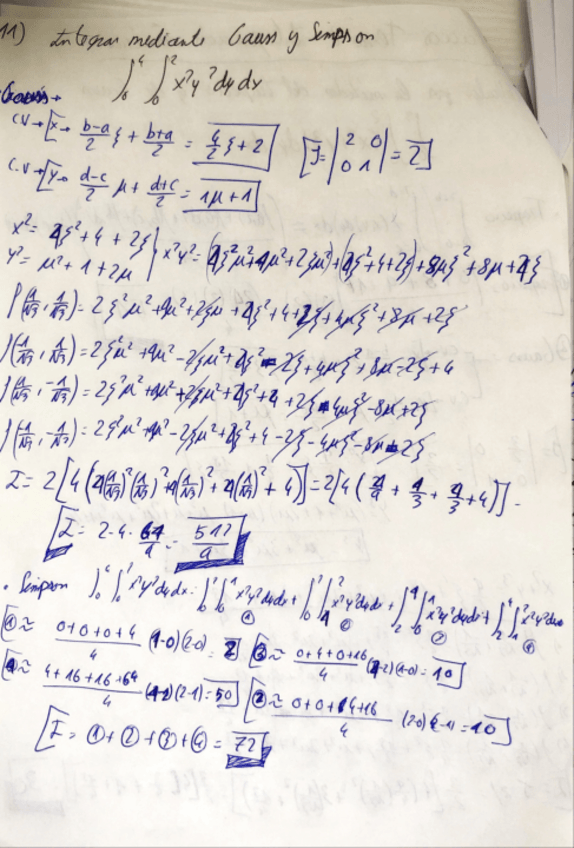 11) Integrar mediante Gauss y Simpson
∫₀⁴ ∫₀² x²y² dy dx
Gauss→
C.V→[x→ b-a/2 ξ + b+a/2 = 4/2 ξ+2] [J= |2 0; 0 1| = 2]
C.V→[y→ d-c/2 μ + d+c/2 = 1μ+1]
x² = 4ξ²+4+2ξ
y² = μ²+1+2μ | x²y² = (4ξ²μ²+4μ²+2ξμ²)+(4ξ²+4+2ξ)+8μξ²+8μ+4ξ
f(1/√3, 1/√3) = 2ξ²μ²+4μ²+2ξμ+4ξ²+4+2ξ+4μξ²+8μ+2ξ
f(-1/√3, 1/√3) = 2ξ²μ²+4μ²-2ξμ²+4ξ²-2ξ+4μξ²+8μ-2ξ+4
f(1/√3, -1/√3) = 2ξ²μ²+4μ²+2ξμ²+4ξ²+4+2ξ-4μξ²-8μ+2ξ
f(-1/√3, -1/√3) = 2ξ²μ²+4μ²-2ξμ²+4ξ²+4-2ξ-4μξ²-8μ-2ξ
I = 2[4(4(1/√3)²(1/√3)²+4(1/√3)²+4(1/√3)²+4)] = 2[4(4/9+4/3+4/3+4)].
[I = 2·4·64/9 = 512/9]
· Simpson ∫₀⁴∫₀² x²y² dy dx = ∫₀²∫₀¹ x²y² dy dx + ∫₀²∫₁² x²y² dy dx + ∫₂⁴∫₀¹ x²y² dy dx + ∫₂⁴∫₁² x²y² dx
[① ≈ 0+0+0+4/4 (1-0)(2-0) = 2] [③ ≈ 0+4+0+16/4 (2-0) = 10]
[④ ≈ 4+16+16+64/4 (2-1) = 50] [② ≈ 0+0+4+16/4 (2-0) = 10]
[I = ①+②+③+④ = 72]